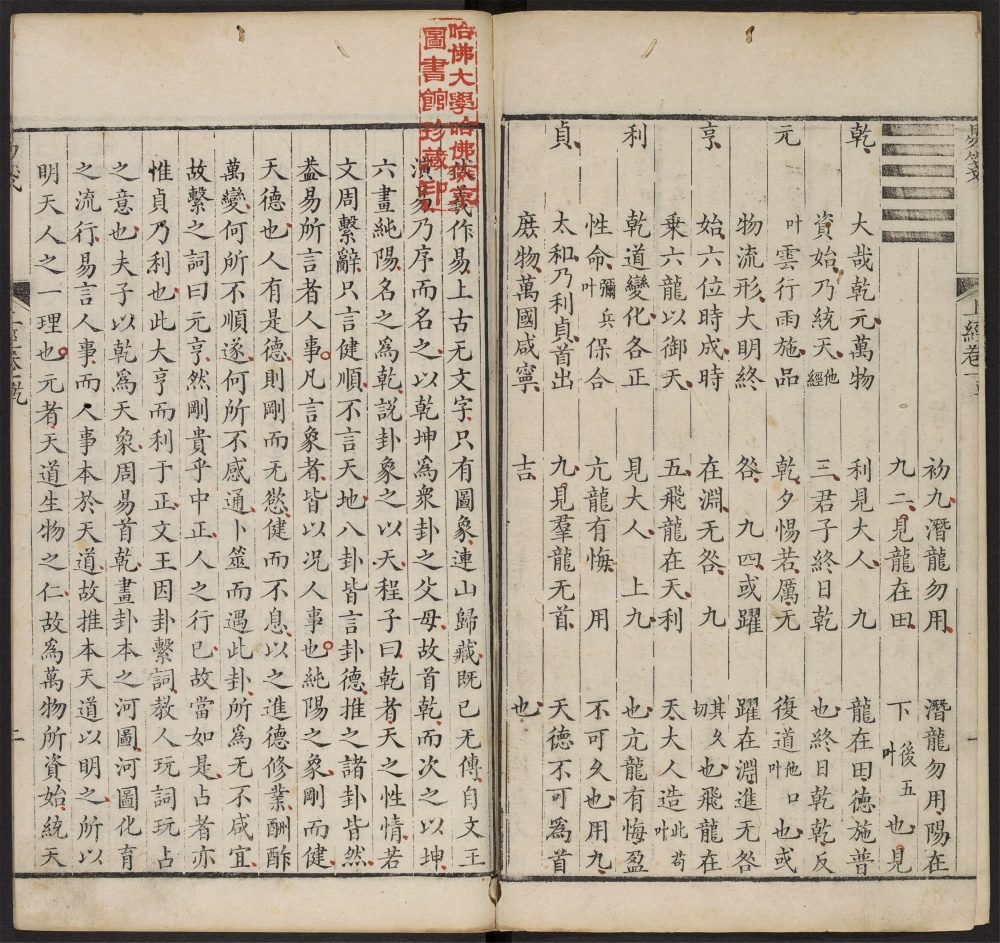 易箋
上經卷一
一
乾
元
亨
利
貞
大哉乾元萬物
資始乃統天他經
叶雲行雨施品
物流形大明終
始六位時成時
乘六龍以御天
乾道變化各正
性命叶彌兵保合
太和乃利貞首出
庶物萬國咸寧
初九潛龍勿用
九二見龍在田
利見大人　九
三君子終日乾
乾夕惕若厲无
咎　九四或躍
在淵无咎　九
五飛龍在天利
見大人　上九
亢龍有悔　用
九見羣龍无首
吉
潛龍勿用陽在
下叶後五也見
龍在田德施普
也終日乾乾反
復道叶他口也或
躍在淵進无咎
其久切也飛龍在
天大人造叶此苟
也亢龍有悔盈
不可久也用九
天德不可為首
也
哈佛大學哈佛燕京
圖書館珍藏印
羲作易上古无文字只有圖象連山歸藏既已无傳自文王
演易乃序而名之以乾坤為衆卦之父母故首乾而次之以坤
六畫純陽名之為乾說卦象之以天程子曰乾者天之性情若
文周繫辭只言健順不言天地八卦皆言卦德推之諸卦皆然
蓋易所言者人事凡言象者皆以况人事也純陽之象剛而健
天德也人有是德則剛而无慾健而不息以之進德修業酬酢
萬變何所不順遂何所不感通卜筮而遇此卦所為无不咸宜
故繫之詞曰元亨然剛貴乎中正人之行已故當如是占者亦
惟貞乃利也此大亨而利于正文王因卦繫詞教人玩詞玩占
之意也夫子以乾為天象周易首乾畫卦本之河圖河圖化育
之流行易言人事而人事本於天道故推本天道以明之所以
明天人之一理也元者天道生物之仁故為萬物所資始統天
二